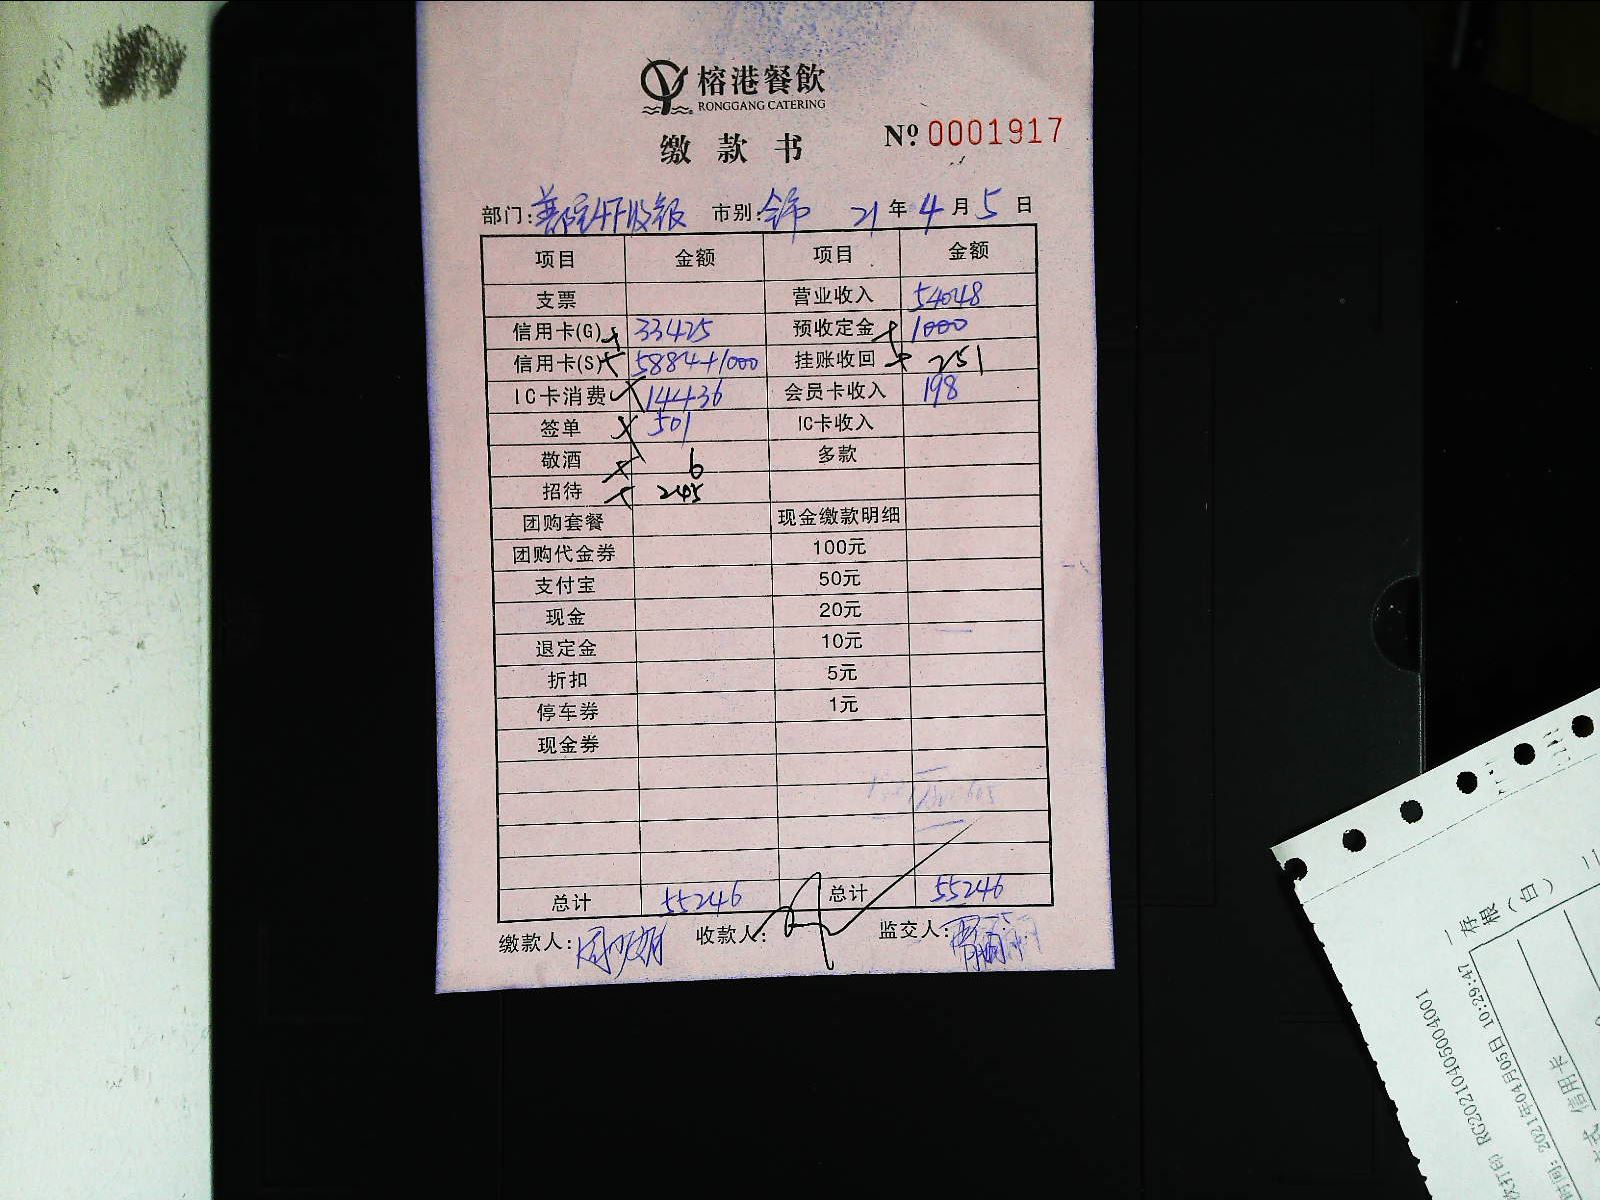 榕港餐飲
RONGGANG CATERING
缴款书
Nº 0001917
部门: 市别:全市 21年4月5日
项目 金额 项目 金额
支票 营业收入 54048
信用卡(G) 33425 预收定金 1000
信用卡(S) 5884+1000 挂账收回 251
IC卡消费 14436 会员卡收入 198
签单 501 IC卡收入
敬酒 6 多款
招待 245
团购套餐 现金缴款明细
团购代金券 100元
支付宝 50元
现金 20元
退定金 10元
折扣 5元
停车券 1元
现金券
总计 55246 总计 55246
缴款人: 收款人: 监交人:
一存根(白) 二
RG20210405004001
时间:2021年04月05日 10:29:47
信用卡